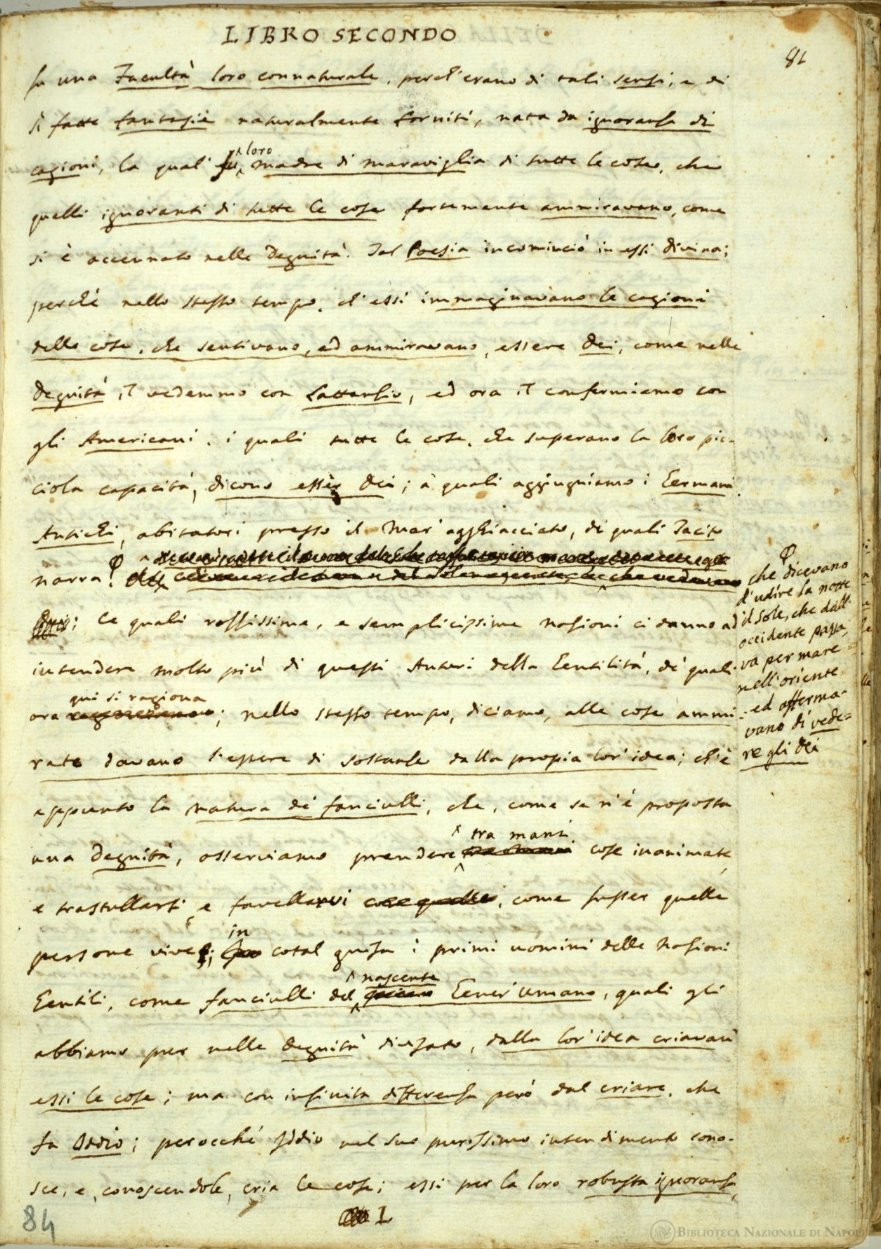 LIBRO SECONDO
81
fu una Facultà loro connaturale, perch'erano di tali sensi, e di
sì fatte fantasie naturalmente forniti, nata da ignoranza di
cagioni, la qual fu loro madre di maraviglia di tutte le cose, che
quelli ignoranti di tutte le cose fortemente ammiravano, come
si è accennato nelle Degnità. Tal Poesia incominciò in essi divina;
perchè nello stesso tempo, ch'essi immaginavano le cagioni
delle cose, che sentivano, ed ammiravano, essere Dei, come nelle
Degnità il vedemmo con Lattanzio, ed ora il confermiamo con
gli Americani, i quali tutte le cose, che superano la loro pic-
ciola capacità, dicono esser Dei; a' quali aggiugniamo i Germani
Antichi, abitatori presso il Mar' agghiacciato, de' quali Tacito
narra,
che dicevano
d'udire la notte
il Sole, che dall'
occidente passa-
va per mare
nell'oriente
ed afferma-
vano di vede-
re gli Dei
; le quali rozzissime, e semplicissime nazioni ci danno ad
intendere molto più di questi Autori della Gentilità, de' quali
ora qui si ragiona; nello stesso tempo, diciamo, alle cose ammi-
rate davano l'essere di sostanze dalla propia lor' idea; ch'è
appunto la natura de' fanciulli, che, come se n'è proposta
una Degnità, osserviamo prendere tra mani cose inanimate,
e trastullarsi, e favellarvi, come fusser quelle
persone vive; in cotal guisa i primi uomini delle Nazioni
Gentili, come fanciulli del nascente Gener' Umano, quali gli
abbiamo pur nelle Degnità divisato, dalla lor' idea criavan
essi le cose; ma con infinita differenza però dal criare, che
fa Iddio; perocchè Iddio nel suo purissimo intendimento cono-
sce, e, conoscendole, cria le cose; essi per la loro robusta ignoranza,
84
L
BIBLIOTECA NAZIONALE DI NAPOLI